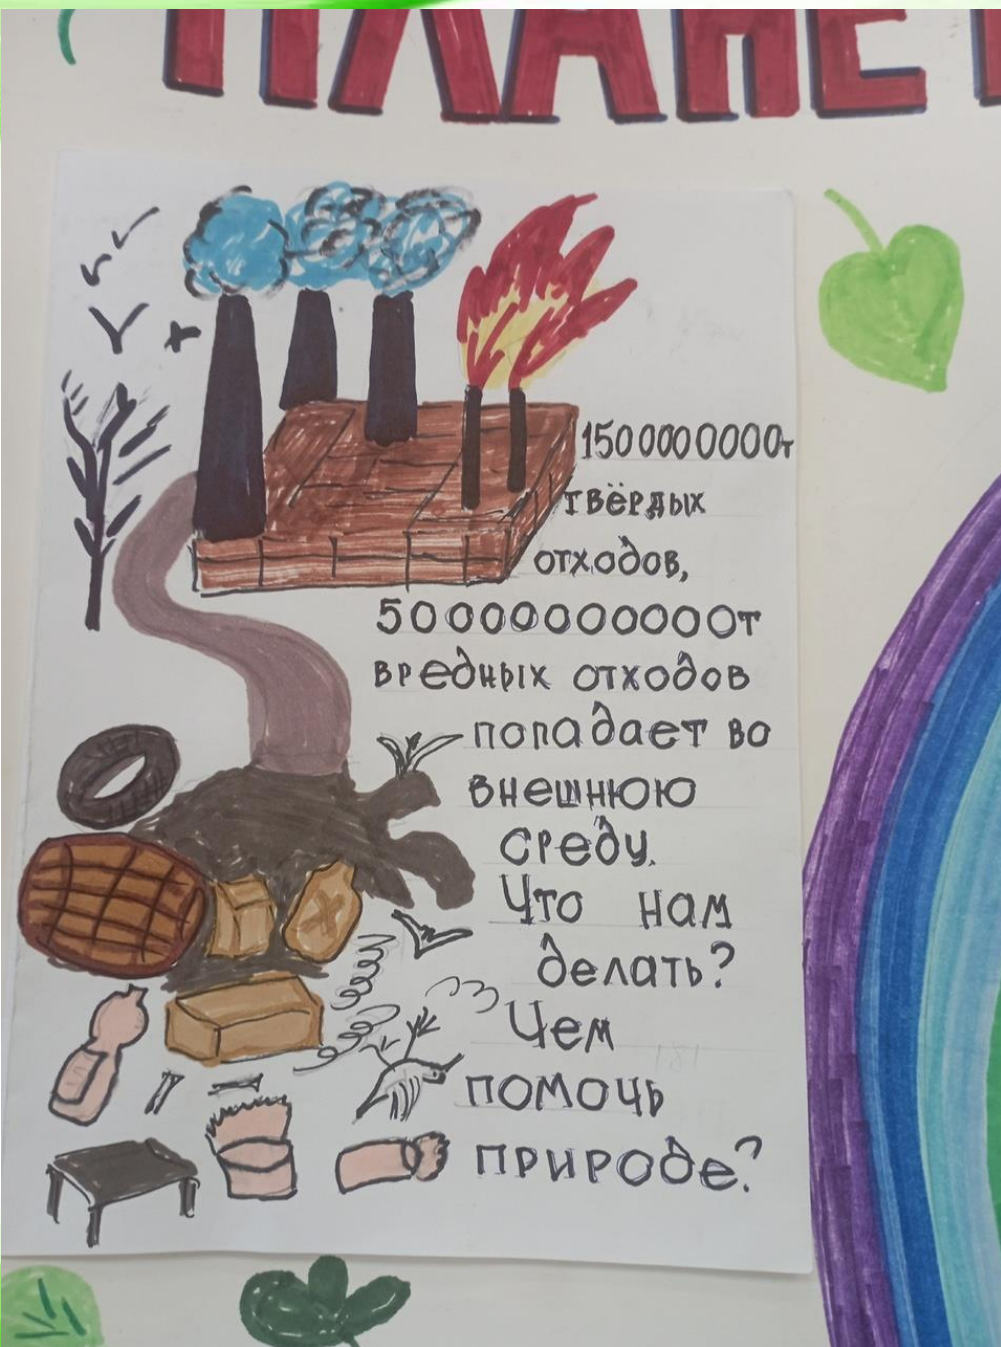 ПЛАНЕ
1500000000т
твёрдых
отходов,
50000000000т
вредных отходов
попадает во
внешнюю
среду.
Что нам
делать?
Чем
помочь
природе?